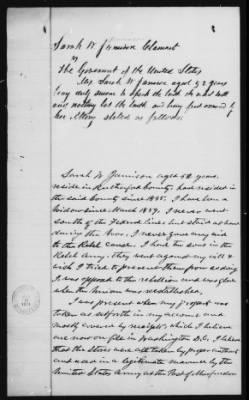 Sarah W. Jamison Claimant
vs
The Government of the United States
Mrs Sarah W Jamison aged 52 years
being duly sworn to speak the truth the whole truth
and nothing but the truth and being first examined by
her Attorney stated as follows:
Sarah W. Jamison aged 52 years.
reside in Rutherford County had resided in
the said County since 1845. I have been a
widow since March 1859. I never went
south of the Federal lines but staid at home
during the war. I never gave any aid
to the Rebel cause. I have two sons in the
Rebel Army. they went against my will &
wish I tried to prevent them from so doing
I was opposed to the rebellion and was glad
when the Union was reestablished.
I was present when my property was
taken as set forth in my account and
mostly covered by receipts which I believe
are now on file in Washington D.C. I believe
that the Stores were taken by proper authority
and used in a legitimate manner by the
United States Army at the Post of Murfreesboro